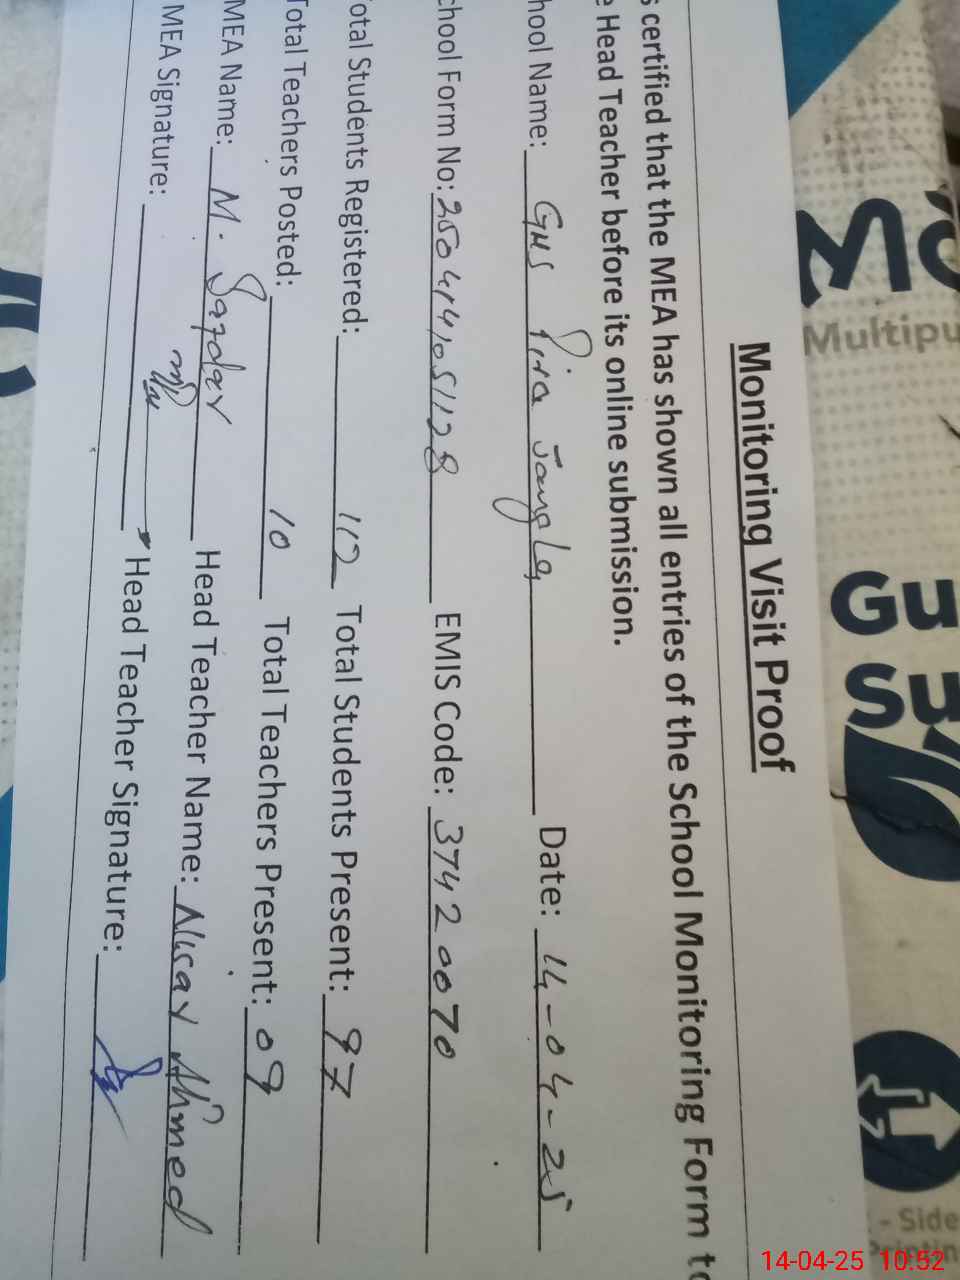 Monitoring Visit Proof
s certified that the MEA has shown all entries of the School Monitoring Form to
e Head Teacher before its online submission.
hool Name: GHS Pira Jangla Date: 14-04-25
chool Form No: EMIS Code: 37420070
otal Students Registered: 112 Total Students Present: 97
Total Teachers Posted: 10 Total Teachers Present: 09
MEA Name: M. Safdar Head Teacher Name: Ahmed
MEA Signature: Head Teacher Signature:
Mo
Multipu
Gu
Su
- Side
Printin
14-04-25 10:52